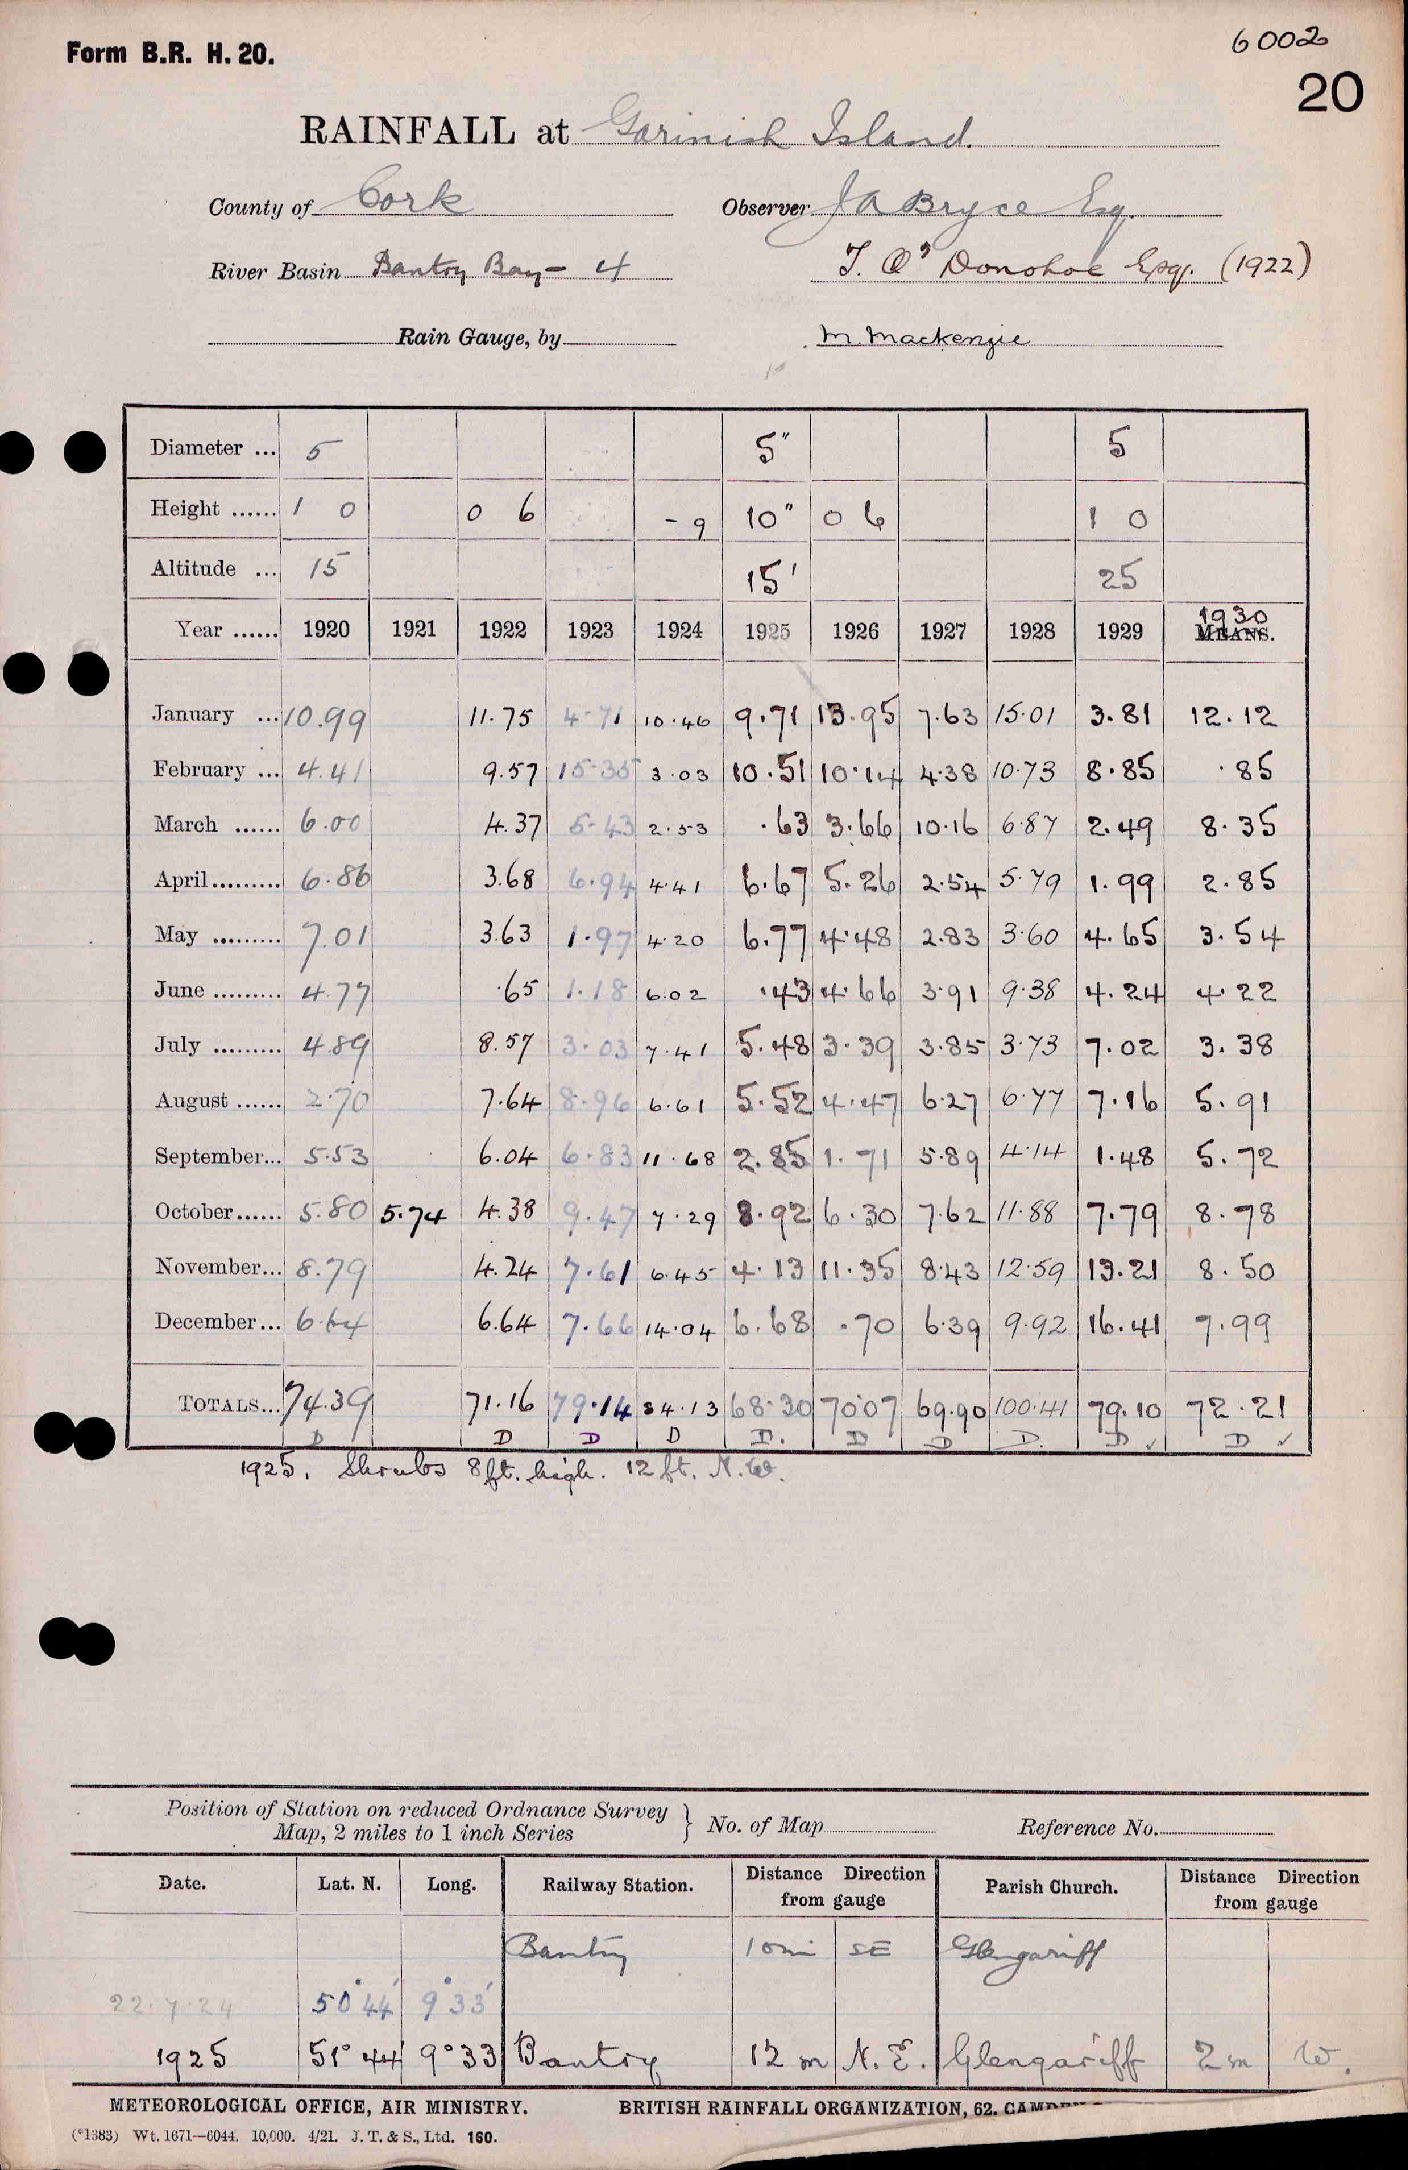 Form B.R. H. 20.
6002
20
RAINFALL at Garinish Island.
County of Cork Observer J A Bryce Esq.
River Basin Bantry Bay - 4 T. O'Donohoe Esq. (1922)
Rain Gauge, by M. Mackenzie
Diameter ... 5 5" 5
Height ...... 1 0 0 6 - 9 10" 0 6 1 0
Altitude ... 15 15' 25
Year ...... 1920 1921 1922 1923 1924 1925 1926 1927 1928 1929 1930 MEANS.
January ... 10.99 11.75 4.71 10.46 9.71 13.95 7.63 15.01 3.81 12.12
February ... 4.41 9.57 15.35 3.03 10.51 10.14 4.38 10.73 8.85 .85
March ...... 6.00 4.37 5.43 2.53 .63 3.66 10.16 6.87 2.49 8.35
April ......... 6.86 3.68 6.94 4.41 6.67 5.26 2.54 5.79 1.99 2.85
May ......... 7.01 3.63 1.97 4.20 6.77 4.48 2.83 3.60 4.65 3.54
June ......... 4.77 .65 1.18 6.02 .43 4.66 3.91 9.38 4.24 4.22
July ......... 4.89 8.57 3.03 7.41 5.48 3.39 3.85 3.73 7.02 3.38
August ...... 2.70 7.64 8.96 6.61 5.52 4.47 6.27 6.77 7.16 5.91
September... 5.53 6.04 6.83 11.68 2.85 1.71 5.89 4.14 1.48 5.72
October...... 5.80 5.74 4.38 9.47 7.29 8.92 6.30 7.62 11.88 7.79 8.78
November... 8.79 4.24 7.61 6.45 4.13 11.35 8.43 12.59 13.21 8.50
December... 6.64 6.64 7.66 14.04 6.68 .70 6.39 9.92 16.41 7.99
TOTALS... 74.39 71.16 79.14 84.13 68.30 70.07 69.90 100.41 79.10 72.21
D D D D D. D D D. D ✓ D ✓
1925. Shrubs 8ft. high. 12 ft. N.W.
Position of Station on reduced Ordnance Survey
Map, 2 miles to 1 inch Series } No. of Map Reference No.
Date. Lat. N. Long. Railway Station. Distance Direction from gauge Parish Church. Distance Direction from gauge
Bantry 10mi SE Glengariff
22.7.24 50°44' 9°33'
1925 51°44 9°33 Bantry 12 m N.E. Glengariff 2m W.
METEOROLOGICAL OFFICE, AIR MINISTRY. BRITISH RAINFALL ORGANIZATION, 62. CAMDEN
(*1383) Wt. 1671—6044. 10,000. 4/21. J. T. & S., Ltd. 160.